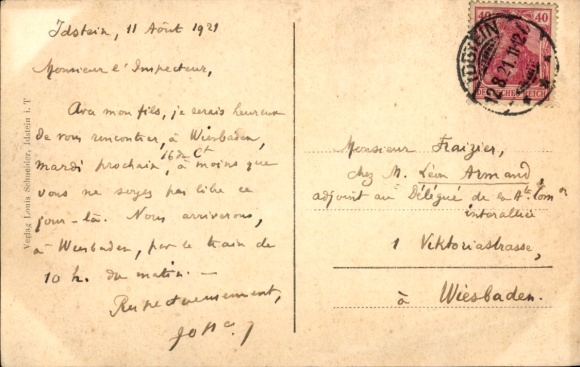 Idstein, 11 Août 1921
Monsieur l'Inspecteur,
mon fils, je serais heureux
de vous rencontrer, à Wiesbaden,
mardi prochain, 16 du Ct, à moins que
vous ne soyez pas libre ce
jour-là. Nous arriverons,
à Wiesbaden, par le train de
10 h. du matin. —
Respectueusement,
Verlag Louis Schneider, Idstein i. T
40 40
DEUTSCHES REICH
IDSTEIN
12.8.21. 11-12
Monsieur Fraizier,
chez M. Léon Armand,
adjoint au Délégué de la Hte Com on
interalliée
1 Viktoriastrasse,
à Wiesbaden.